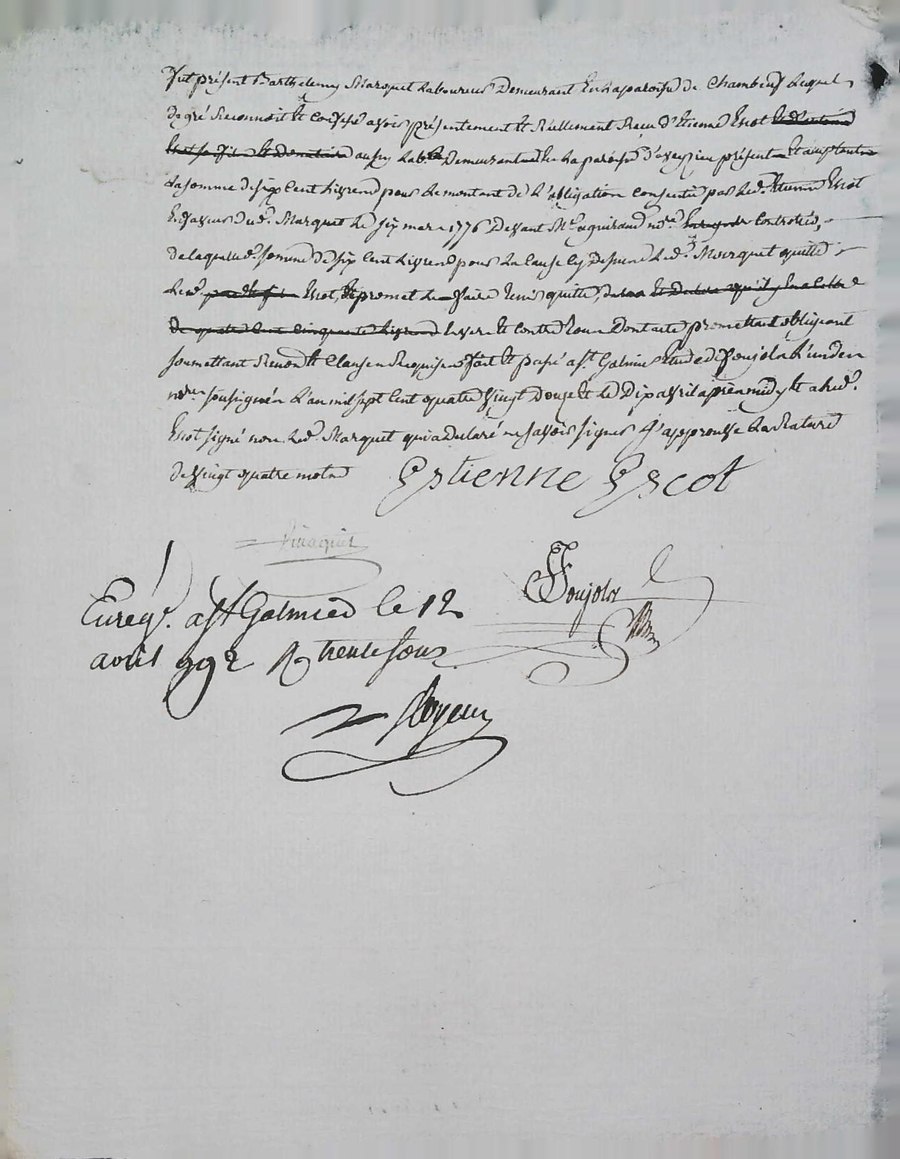 fut présent Barthelemy Marquet Laboureur Demeurant En La paroisse de Chambeuf Lequel
de gré Reconnoit Et Confesse avoir présentement Et Réellemant Receu d'Etienne Escot
aussy Lab.r Demeurant La paroisse d'aveyzieu présent
La somme de six Cent Livres pour Le montant de L'obligation Consentie par Led. Etienne Escot
En faveur dud. Marquet Le six mars 1776 Devant M.e aguiraud no.re Controllée,
de laquelle somme de six Cent Livres pour La Cause Cy Dessus Led. Marquet quitte
Led. Escot, Et promet Le faire tenir quitte,
envers Et Contre tous Dont acte promettant obligeant
soumettant Renon.t Et Clauses Requises fait Et passé a S.t Galmier Etude de Poujola L'un des
no.res soussignés L'an mil sept Cent quatre vingt Douze Et Le Dix avril après midy Et a Led.
Escot signé non Led. Marquet qui a declaré ne savoir signer J'approuve La Rature
de vingt quatre mots Estienne Escot
Poujola
Enreg. a S.t Galmier le 12
avril 992 R trente sous